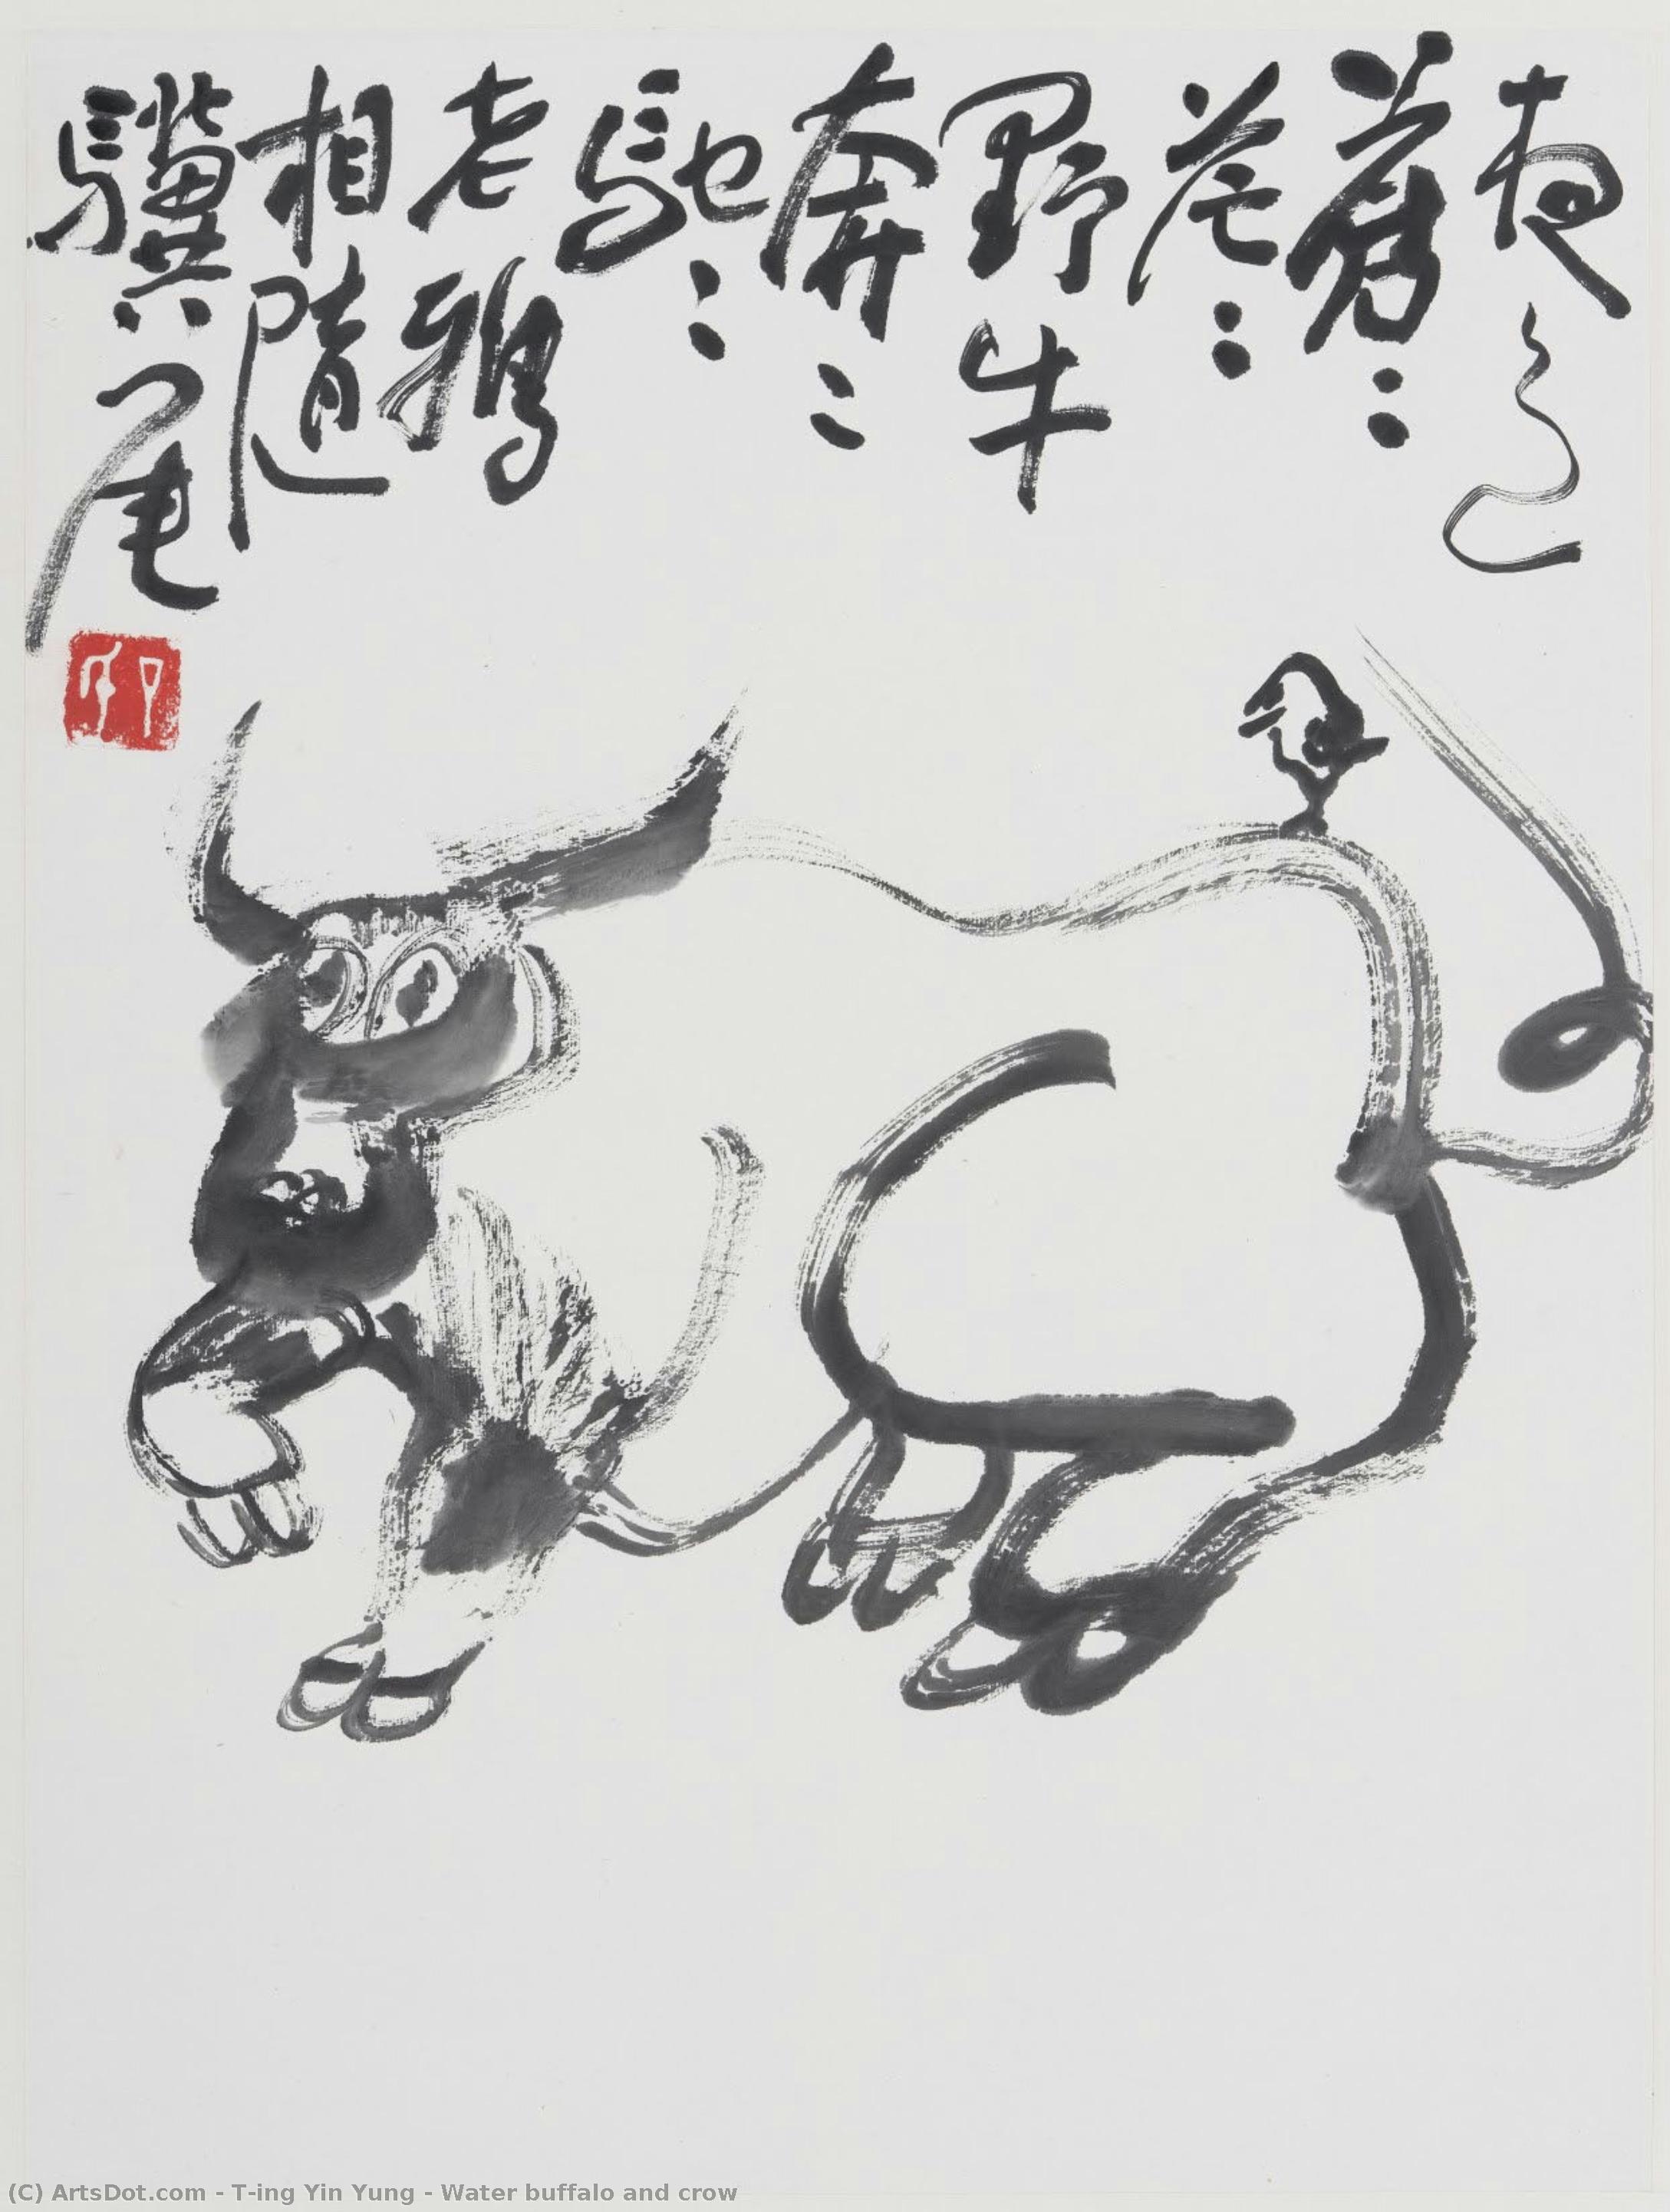 夜色
蒼〻
茫〻
野牛
奔〻
馳〻
老鴉
相隨
驥尾
(C) ArtsDot.com - T-ing Yin Yung - Water buffalo and crow